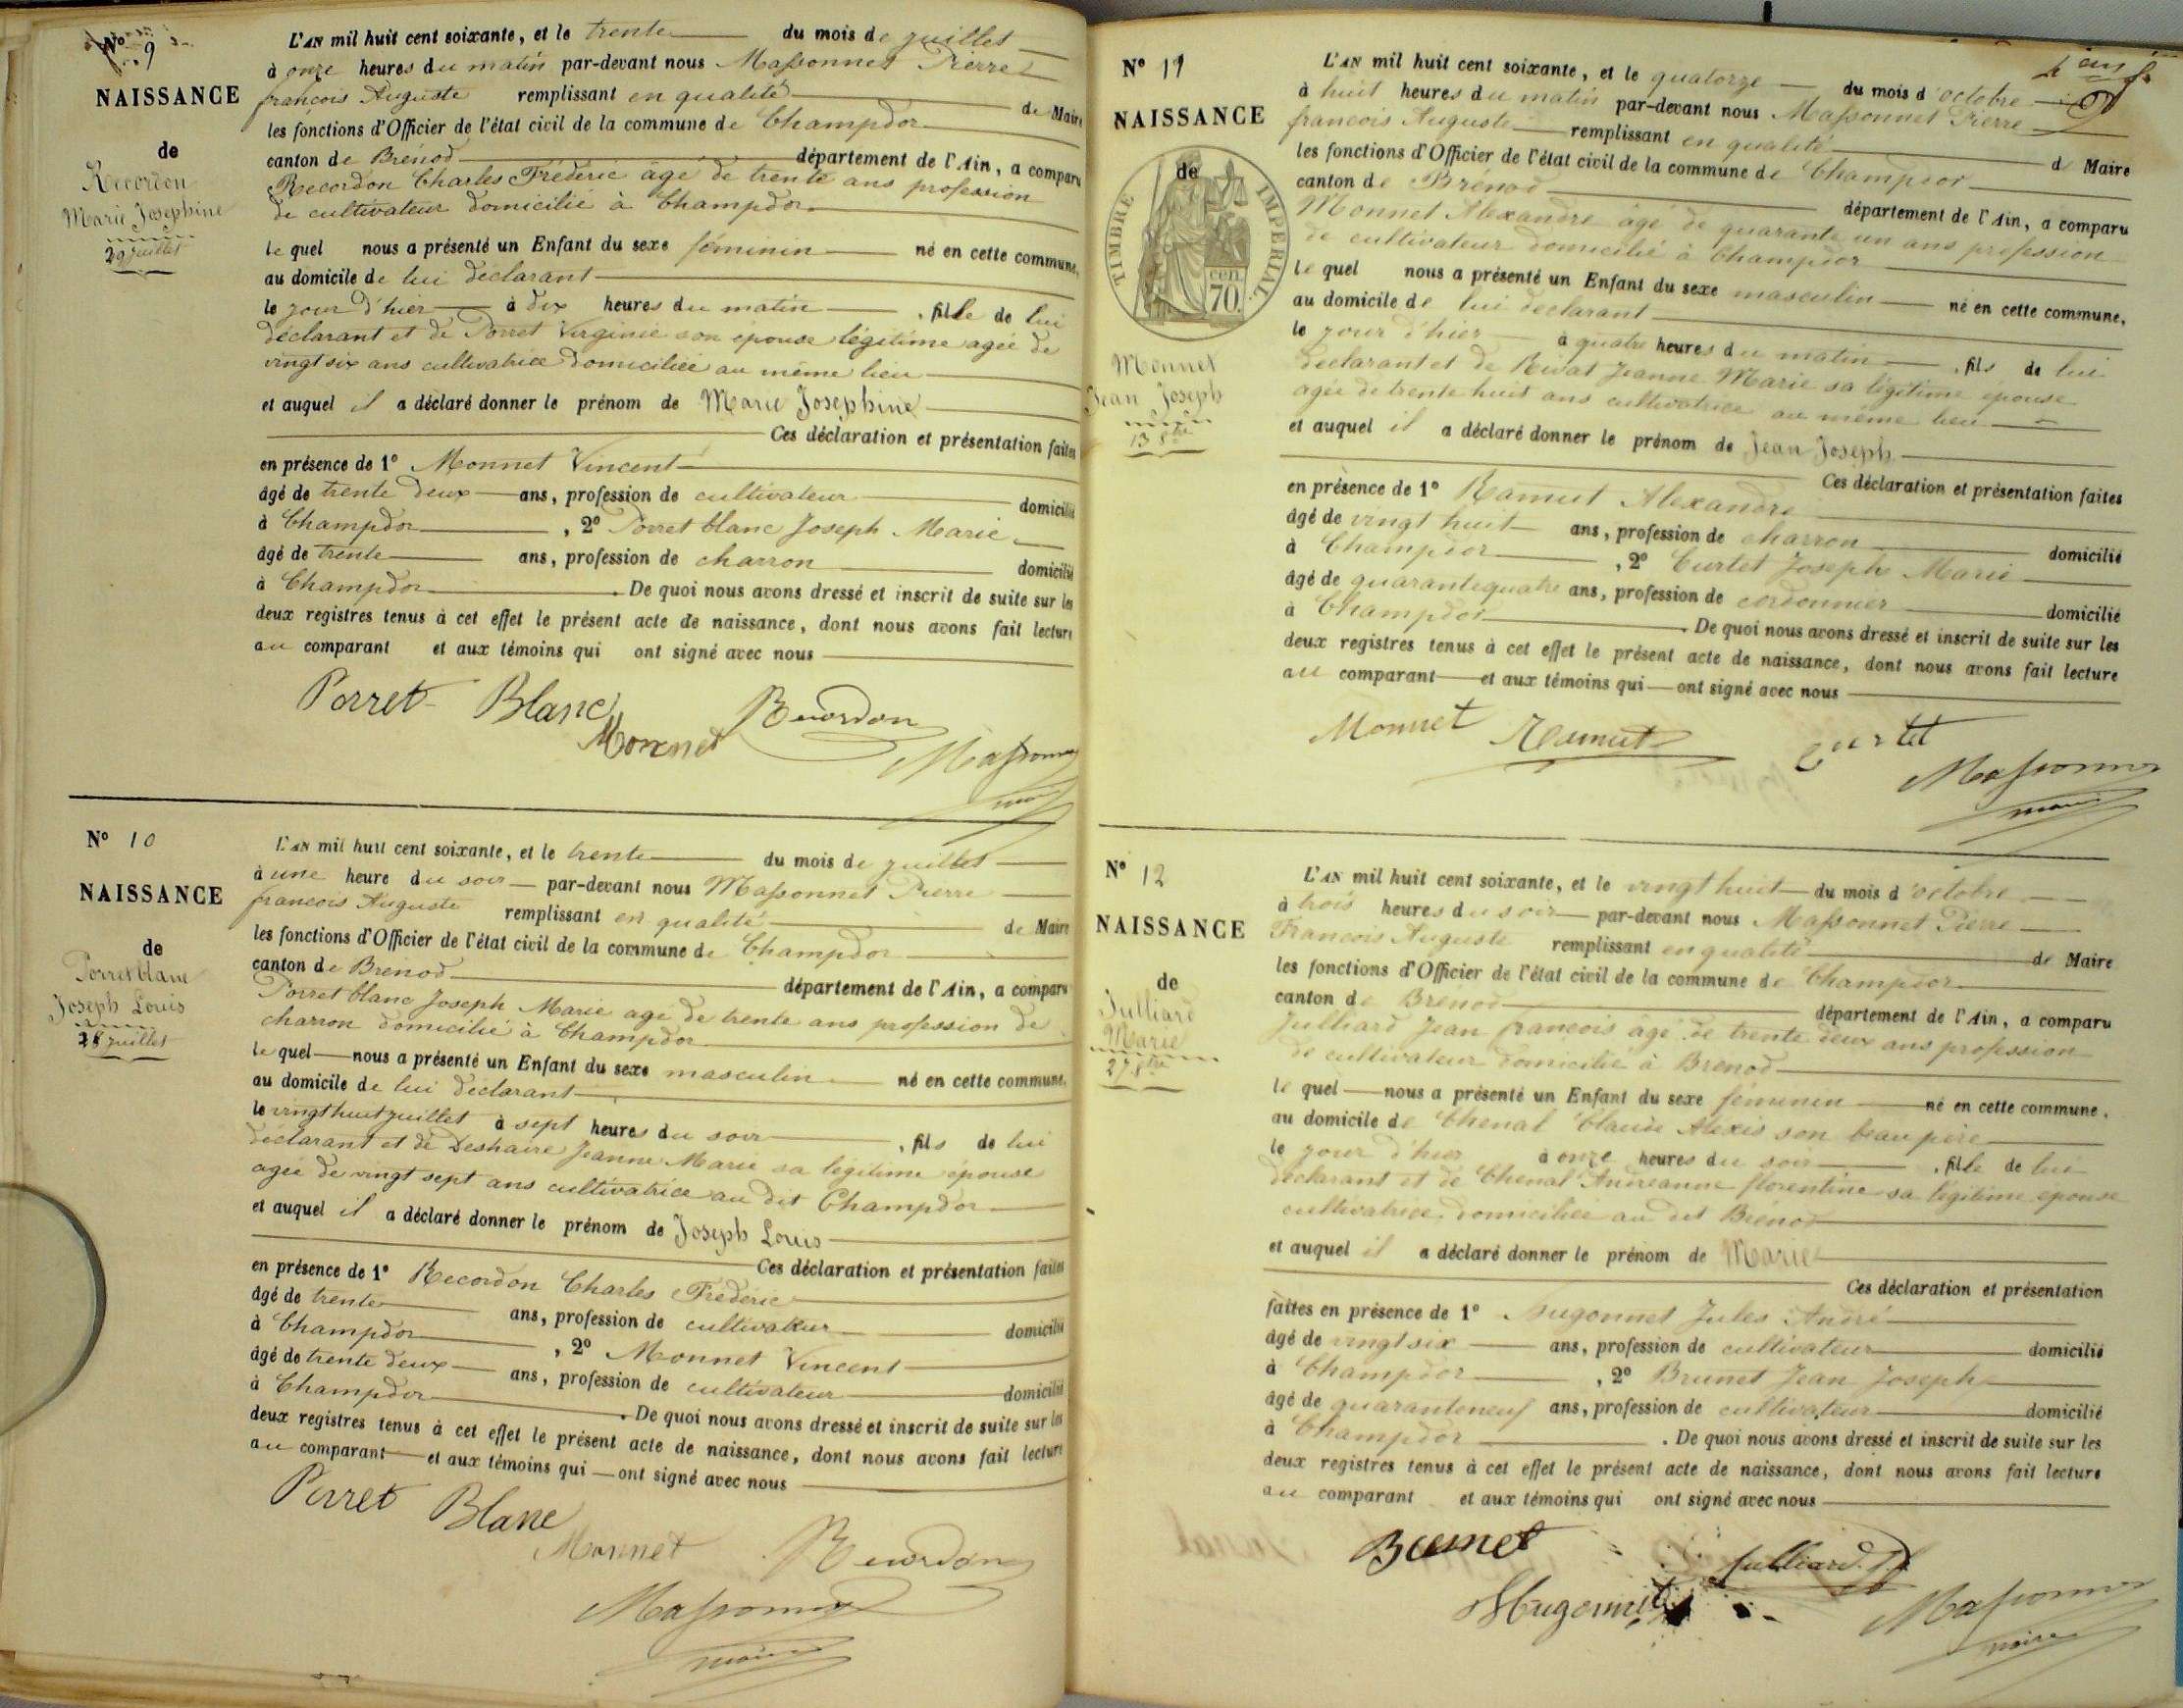 N° 9
NAISSANCE
de
Recordon
Marie Josephine
29 juillet
L'AN mil huit cent soixante, et le trente du mois de juillet
à onze heures du matin par-devant nous Massonnet Pierre
françois Auguste remplissant en qualité de Maire
les fonctions d'Officier de l'état civil de la commune de Champdor
canton de Brénod département de l'Ain, a comparu
Recordon Charles Fréderic âgé de trente ans profession
de cultivateur domicilié à Champdor
le quel nous a présenté un Enfant du sexe féminin né en cette commune,
au domicile de lui déclarant
le jour d'hier à dix heures du matin, fille de lui
déclarant et de Porret Virginie son épouse légitime agée de
vingt six ans cultivatrice domiciliée au même lieu
et auquel il a déclaré donner le prénom de Marie Josephine
Ces déclaration et présentation faites
en présence de 1° Monnet Vincent
âgé de trente deux ans, profession de cultivateur domicilié
à Champdor, 2° Porret blanc Joseph Marie
âgé de trente ans, profession de charron domicilié
à Champdor. De quoi nous avons dressé et inscrit de suite sur les
deux registres tenus à cet effet le présent acte de naissance, dont nous avons fait lecture
au comparant et aux témoins qui ont signé avec nous
Porret Blanc Recordon
Monnet Massonnet
maire
N° 10
NAISSANCE
de
Porret blanc
Joseph Louis
28 juillet
L'AN mil huit cent soixante, et le trente du mois de juillet
à une heure du soir par-devant nous Massonnet Pierre
francois Auguste remplissant en qualité de Maire
les fonctions d'Officier de l'état civil de la commune de Champdor
canton de Brénod département de l'Ain, a comparu
Porret blanc Joseph Marie agé de trente ans profession de
charron domicilié à Champdor
le quel nous a présenté un Enfant du sexe masculin né en cette commune,
au domicile de lui déclarant
le vingt huit juillet à sept heures du soir, fils de lui
déclarant et de Deshaire Jeanne Marie sa légitime épouse
agée de vingt sept ans cultivatrice au dit Champdor
et auquel il a déclaré donner le prénom de Joseph Louis
Ces déclaration et présentation faites
en présence de 1° Recordon Charles Fréderic
âgé de trente ans, profession de cultivateur domicilié
à Champdor, 2° Monnet Vincent
âgé de trente deux ans, profession de cultivateur domicilié
à Champdor. De quoi nous avons dressé et inscrit de suite sur les
deux registres tenus à cet effet le présent acte de naissance, dont nous avons fait lecture
au comparant et aux témoins qui ont signé avec nous
Porret Blanc
Monnet Recordon
Massonnet
maire
N° 11
NAISSANCE
de
TIMBRE IMPERIAL
70 cen
Monnet
Jean Joseph
13 8bre
L'AN mil huit cent soixante, et le quatorze du mois d'octobre
à huit heures du matin par-devant nous Massonnet Pierre
francois Auguste remplissant en qualité d Maire
les fonctions d'Officier de l'état civil de la commune de Champdor
canton de Brénod département de l'Ain, a comparu
Monnet Alexandre âgé de quarante un ans profession
de cultivateur domicilié à Champdor
le quel nous a présenté un Enfant du sexe masculin né en cette commune,
au domicile de lui déclarant
le jour d'hier à quatre heures du matin, fils de lui
déclarant et de Rivat Jeanne Marie sa légitime épouse
agée de trente huit ans cultivatrice au même lieu
et auquel il a déclaré donner le prénom de Jean Joseph
Ces déclaration et présentation faites
en présence de 1° Ramut Alexandre
âgé de vingt huit ans, profession de charron domicilié
à Champdor, 2° Curtet Joseph Marie
âgé de quarante quatre ans, profession de cordonnier domicilié
à Champdor. De quoi nous avons dressé et inscrit de suite sur les
deux registres tenus à cet effet le présent acte de naissance, dont nous avons fait lecture
au comparant et aux témoins qui ont signé avec nous
Monnet Ramut Curtet
Massonnet
maire
N° 12
NAISSANCE
de
Julliard
Marie
27 8bre
L'AN mil huit cent soixante, et le vingt huit du mois d'octobre
à trois heures du soir par-devant nous Massonnet Pierre
Francois Auguste remplissant en qualité de Maire
les fonctions d'Officier de l'état civil de la commune de Champdor
canton de Brénod département de l'Ain, a comparu
Julliard Jean francois âgé de trente deux ans profession
de cultivateur domicilié à Brenod
le quel nous a présenté un Enfant du sexe féminin né en cette commune,
au domicile de Chenal Claude Alexis son beau père
le jour d'hier à onze heures du soir, fille de lui
déclarant et de Chenal Andréanne florentine sa légitime épouse
cultivatrice domiciliée au dit Brénod
et auquel il a déclaré donner le prénom de Marie
Ces déclaration et présentation
faites en présence de 1° Hugonnet Jules André
âgé de vingt six ans, profession de cultivateur domicilié
à Champdor, 2° Brunet Jean Joseph
âgé de quarante neuf ans, profession de cultivateur domicilié
à Champdor. De quoi nous avons dressé et inscrit de suite sur les
deux registres tenus à cet effet le présent acte de naissance, dont nous avons fait lecture
au comparant et aux témoins qui ont signé avec nous
Brunet Julliard
Hugonnet Massonnet
maire